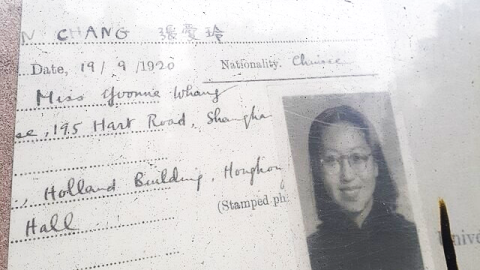 N CHANG 張愛玲
Date, 19 / 9 / 1920 Nationality. Chinese
Miss Yvonne Whang
se, 195 Hart Road, Shangha
, Holland Building, Hongkong
(Stamped ph
Hall
Unive